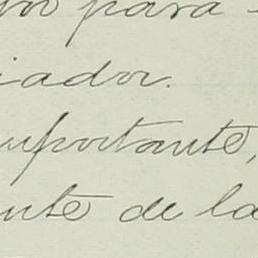 para
iador.
mportante,
nte de la